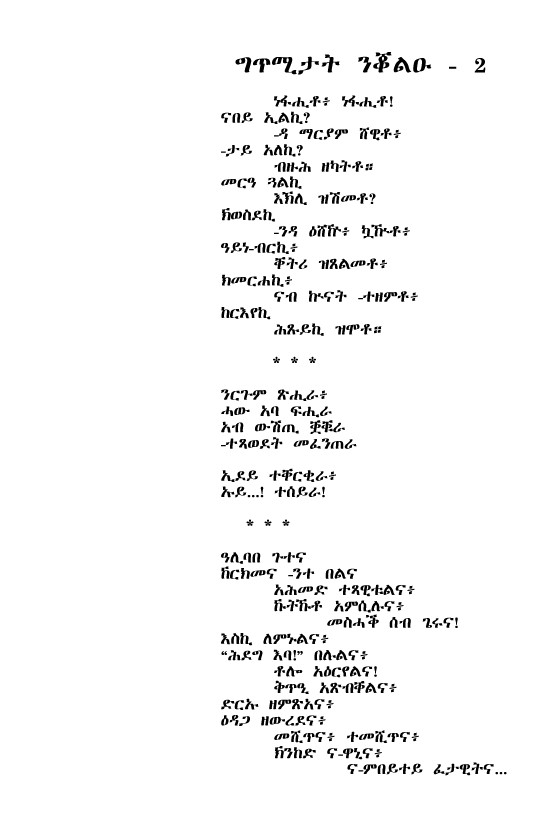 ግጥሚታት ንቖልዑ - 2
ነፋሒቶ፥ ነፋሒቶ!
ናበይ ኢልኪ?
-ዳ ማርያም ሸዊቶ፥
-ታይ አለኪ?
ብዙሕ ዘካትቶ።
መርዓ ጓልኪ
እኽሊ ዝሽመቶ?
ክወስደኪ
-ንዳ ዕሸዅ፥ ኳዅቶ፥
ዓይነ-ብርኪ፥
ቐትሪ ዝጸልመቶ፥
ክመርሐኪ፥
ናብ ኵናት -ተዘምቶ፥
ከርእየኪ
ሕጹይኪ ዝሞቶ።
* * *
ንርጉም ጽሒራ፥
ሓው አባ ፍሒራ
አብ ውሽጢ ቛቑራ
-ተጻወደት መፈንጠራ
ኢደይ ተቐርቂራ፥
ኡይ...! ተሰይራ!
* * *
ዓሊባበ ጉተና
ኸርክመና -ንተ በልና
አሕመድ ተጻዊቱልና፥
ኩትኩቶ አምሲሉና፥
መስሓቕ ሰብ ጌሩና!
እስኪ ለምኑልና፥
“ሕደግ እባ!” በሉልና፥
ቶሎ አዕርየልና!
ቅጥዒ አጽብቐልና፥
ድርኡ ዘምጽአና፥
ዕዳጋ ዘውረደና፥
መሺጥና፥ ተመሺጥና፥
ክንከድ ና-ዋኒና፥
ና-ምበይተይ ፈታዊትና...